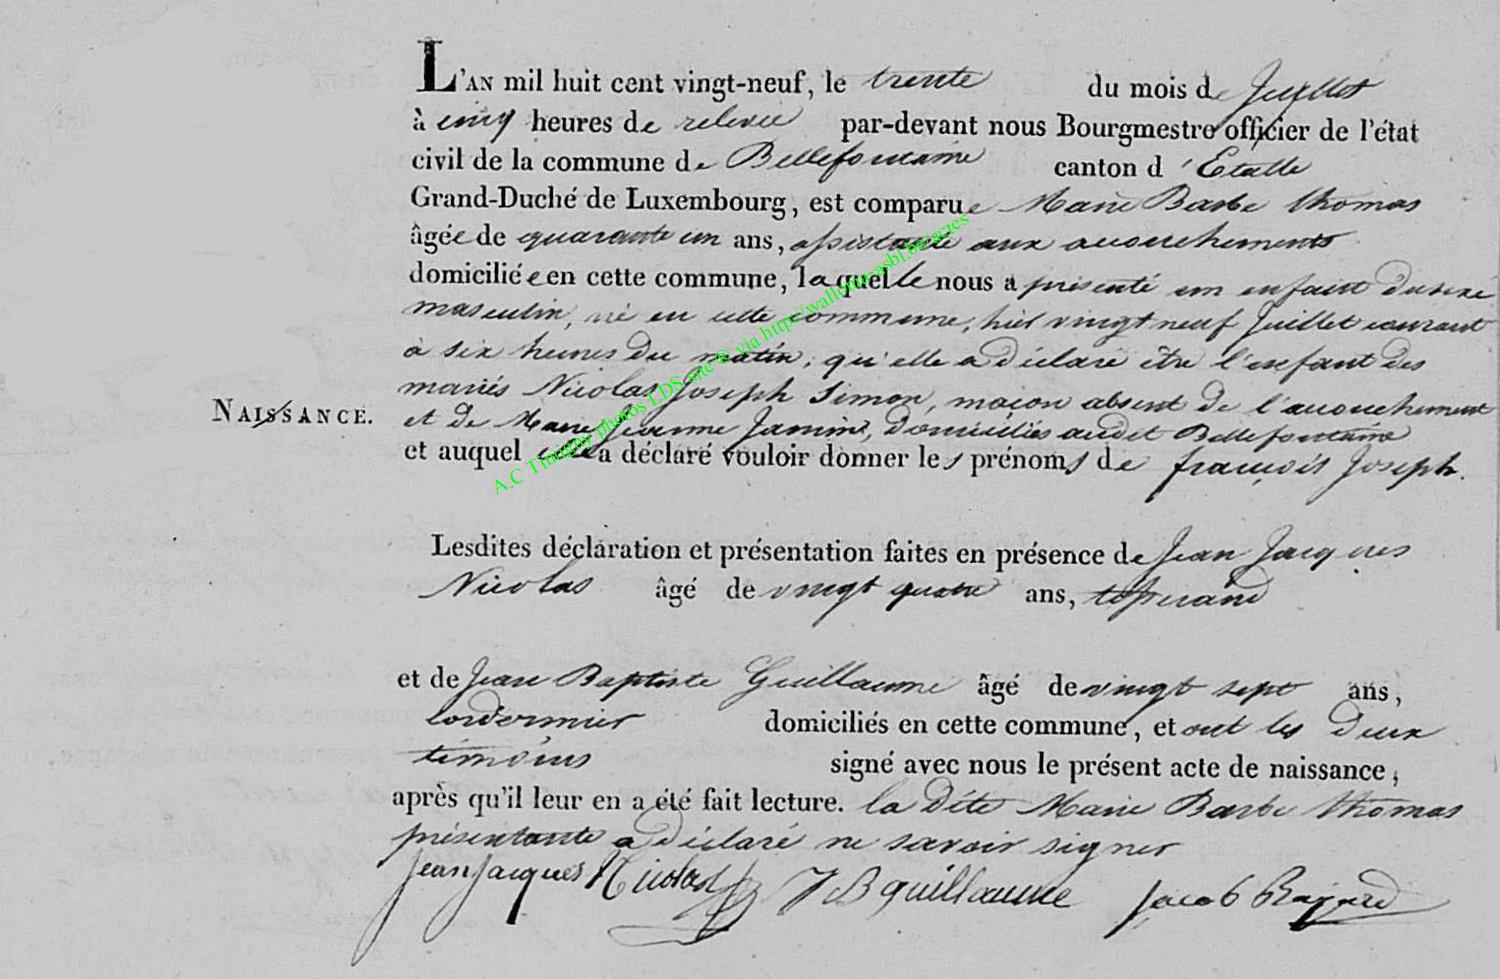 L'AN mil huit cent vingt-neuf, le trente du mois de Juillet
à cinq heures de relevée par-devant nous Bourgmestre officier de l'état
civil de la commune de Bellefontaine canton d'Etalle
Grand-Duché de Luxembourg, est comparue Marie Barbe thomas
âgée de quarante un ans, assistante aux accouchements
domiciliée en cette commune, laquelle nous a présenté un enfant du sexe
masculin, né en cette commune, hiel vingt neuf Juillet courant
à six heures du matin, qu'elle a déclaré être l'enfant des
mariés Nicolas Joseph Simon, maçon absent de l'accouchement
NAISSANCE.
et de Marie Jeanne Janin, domiciliés audit Bellefontaine
et auquel elle a déclaré vouloir donner les prénoms de françois Joseph.
Lesdites déclaration et présentation faites en présence de Jean Jacques
Nicolas âgé de vingt quatre ans, tisserand
et de Jean Baptiste Guillaume âgé de vingt sept ans,
cordonnier domiciliés en cette commune, et ont les deux
témoins signé avec nous le présent acte de naissance,
après qu'il leur en a été fait lecture. la dite Marie Barbe thomas
présentante a déclaré ne savoir signer
Jean Jacques Nicolas J B guillaume Jacob
A.C Tintigny photos LDS site ® via http://wallonia-asbl.be/actes